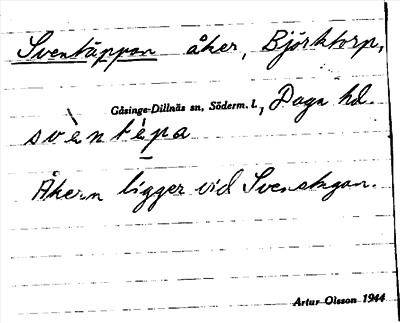 Sventäppan åker, Björktorp,
Gåsinge-Dillnäs sn, Söderm. l., Daga hd.
svèntépa
Åkern ligger vid Svenstugan.
Artur Olsson 1944